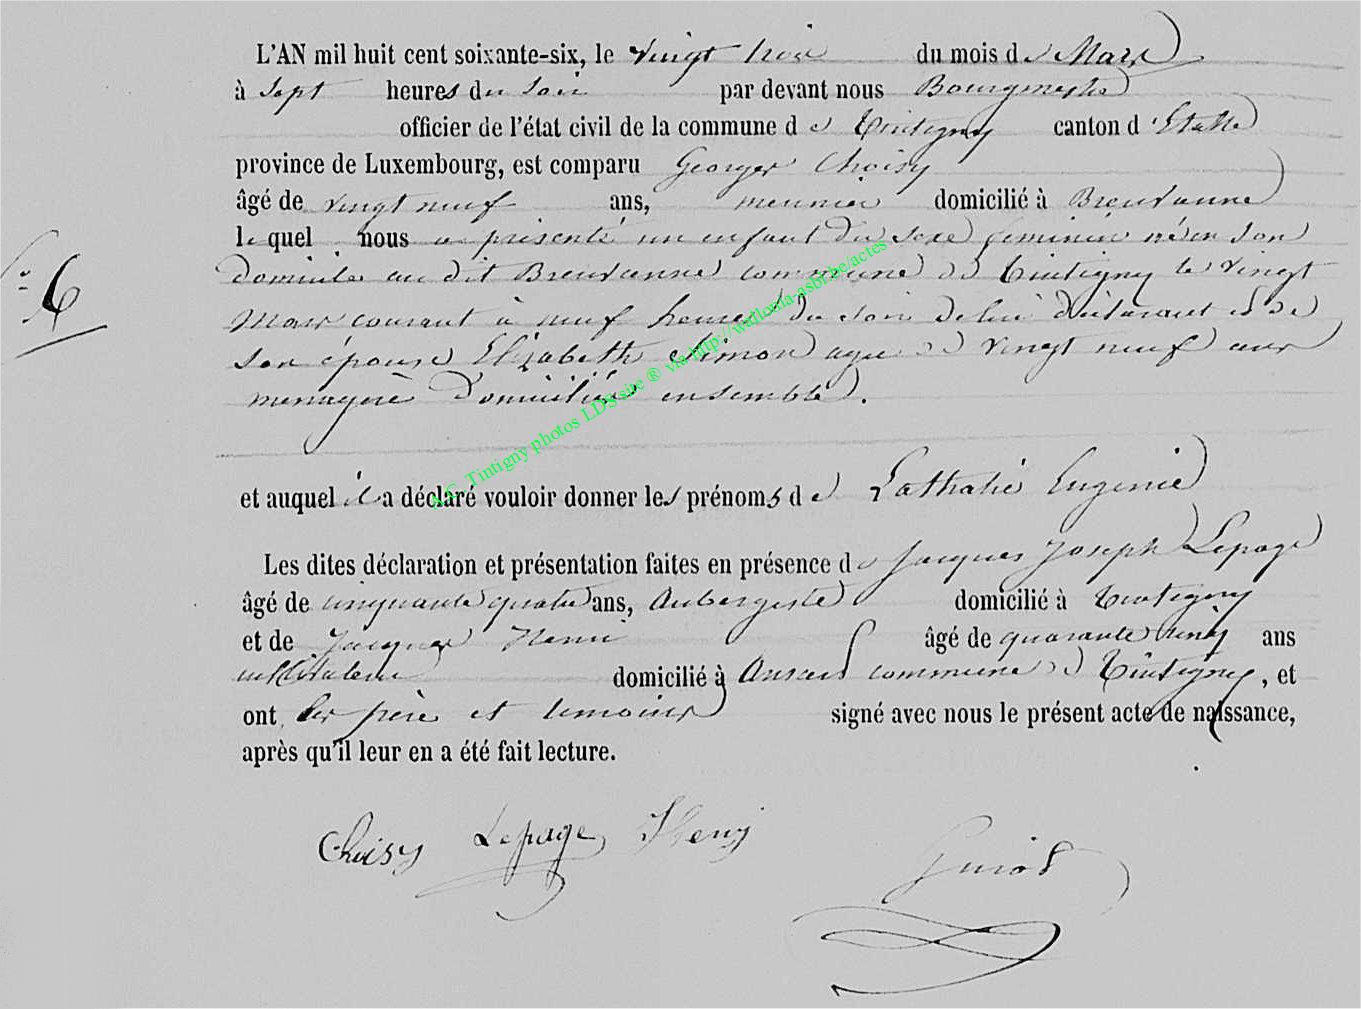 L'AN mil huit cent soixante-six, le vingt trois du mois de Mars
à sept heures du soir par devant nous Bourgmestre
officier de l'état civil de la commune de Tintigny canton d'Etalle
province de Luxembourg, est comparu Georges Choisy
âgé de vingt neuf ans, meunier domicilié à Breuvanne
lequel nous a présenté un enfant du sexe féminin né en son
N° 6
domicile au dit Breuvanne commune de Tintigny le vingt
Mars courant à neuf heures du soir de lui déclarant et de
son épouse Elizabeth Simon agée de vingt neuf ans
menagère domiciliés ensemble.
A.C. Tintigny photos LDS site ® via http://wallonia-asbl.be/actes
et auquel il a déclaré vouloir donner les prénoms de Nathalie Eugenie
Les dites déclaration et présentation faites en présence de Jacques Joseph Lepage
âgé de cinquante quatre ans, Aubergiste domicilié à Tintigny
et de Jacques Henri âgé de quarante cinq ans
cultivateur domicilié à Ansart commune de Tintigny, et
ont les père et temoins signé avec nous le présent acte de naissance,
après qu'il leur en a été fait lecture.
Choisy Lepage Henry